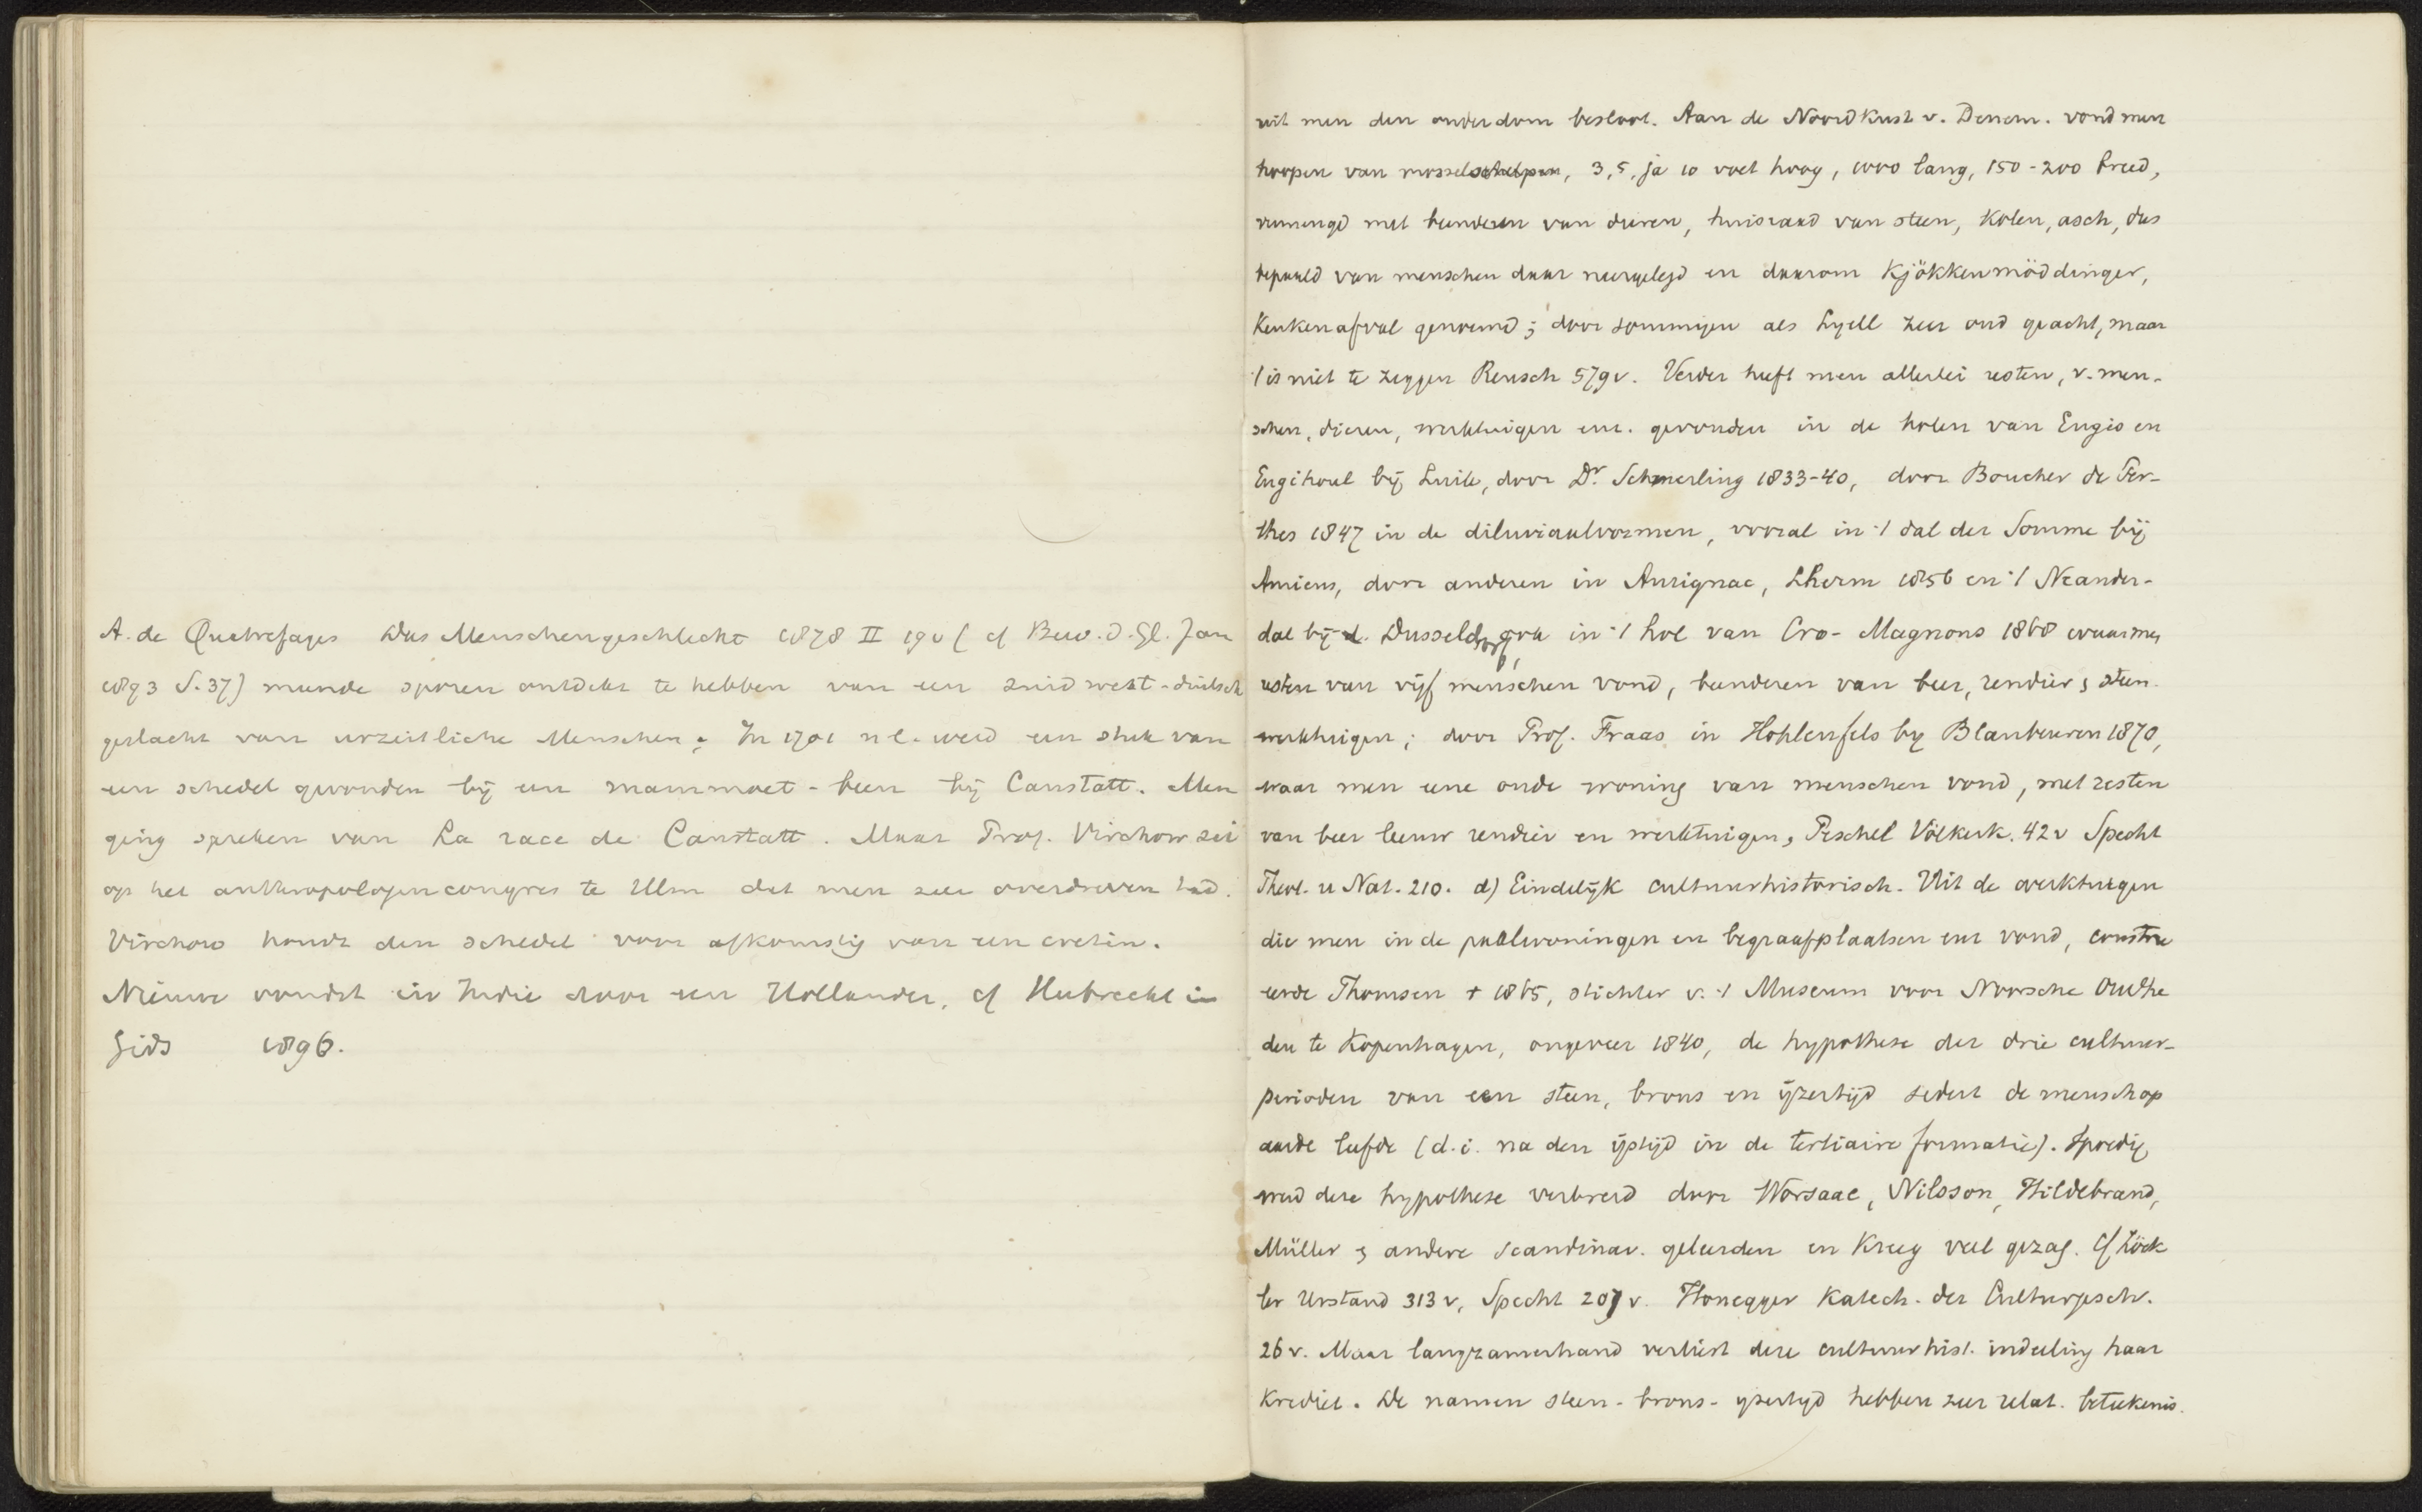 A. de Quatrefages Das Menschengeschlecht 1878 II 19v (cf Bew. d. Gl. Jan
1893 S. 37) meende sporen ontdekt te hebben van een zuidwest-duitsch
geslacht van urzeitliche Menschen; In 1701 nl. werd een stuk van
een schedel gevonden bij een mammoet-been bij Canstatt. Men
ging spreken van La race de Canstatt. Maar Prof. Virchow zei
op het anthropologencongres te Ulm dat men zeer overdreven had.
Virchow houdt den schedel voor afkomstig van een cretin.
Nieuwe vondst in Indie door een Hollander, cf Hubrecht in
Gids 1896.
uit men den ouderdom besloot. Aan de Noordkust v. Denem. vond men
hoopen van mosselschelpen, 3, 5, ja 10 voet hoog, 1000 lang, 150-200 breed,
vermengd met beenderen van dieren, huisraad van steen, kolen, asch, dus
bepaald van menschen daar neergelegd en daarom Kjökkenmöddinger,
Keukenafval genoemd; door sommigen als Lyell zeer oud geacht, maar
't is niet te zeggen Reusch 579v. Verder heeft men allerlei resten, v. men-
schen, dieren, werktuigen enz. gevonden in de holen van Engis en
Engihoul bij Luik, door Dr. Schmerling 1833-40, door Boucher de Per-
thes 1847 in de diluviaalvormen, vooral in 't dal der Somme bij
Amiens, door anderen in Aurignac, Lherm 1856 en 't Neander-
dal bij d. Dusseldorf, in 't hol van Cro-Magnons 1868 waar men
resten van vijf menschen vond, beenderen van beer, rendier & steen.
werktuigen; door Prof. Fraas in Hohlenfels by Blaubeuren 1870,
waar men eene oude woning van menschen vond, met resten
van beer leeuw rendier en werktuigen, Peschel Völkerk. 42v Specht
Theol. u Nat. 210. d) Eindelijk cultuurhistorisch. Uit de werktuigen
die men in de paalwoningen en begraafplaatsen enz vond, constru
eerde Thomsen + 1865, stichter v. 't Museum voor Noorsche Oudhe
den te Kopenhagen, ongeveer 1840, de hypothese der drie cultuur-
perioden van een steen, brons en ijzertijd sedert de mensch op
aarde leefde (d.i. na den ijstijd in de tertiaire formatie). Spoedig
werd deze hypothese verbreid door Worsaae, Nilsson, Hildebrand,
Müller & andere scandinav. geleerden en kreeg veel gezag. Cf Zöck
ler Urstand 313v, Specht 207v. Honegger Katech. der Culturgesch.
26v. Maar langzamerhand verliest deze cultuurhist. indeeling haar
krediet. De namen steen- brons- ijzertijd hebben zeer relat. beteekenis.